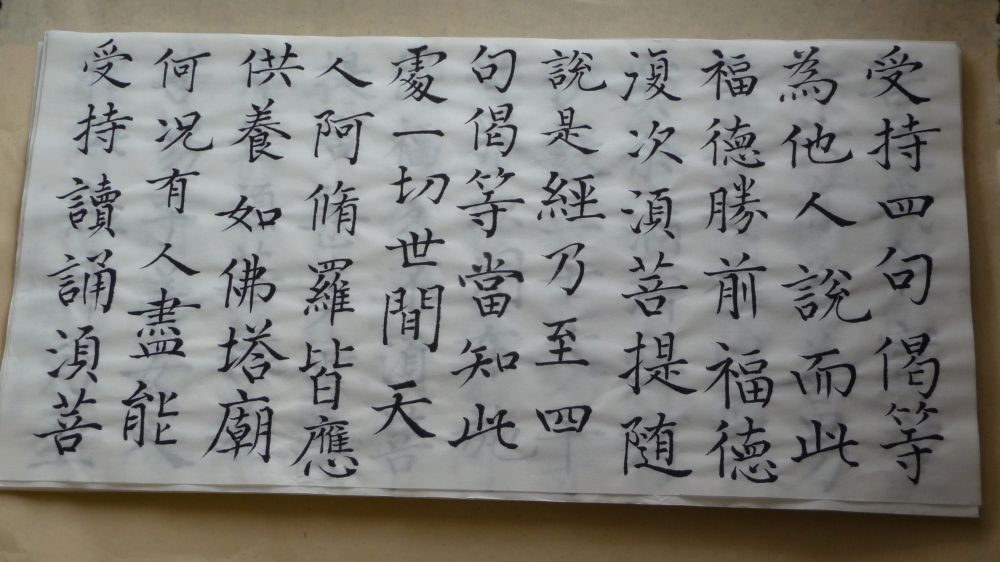 受持四句偈等
為他人說而此
福德勝前福德
復次須菩提隨
說是經乃至四
句偈等當知此
處一切世間天
人阿脩羅皆應
供養如佛塔廟
何況有人盡能
受持讀誦須菩